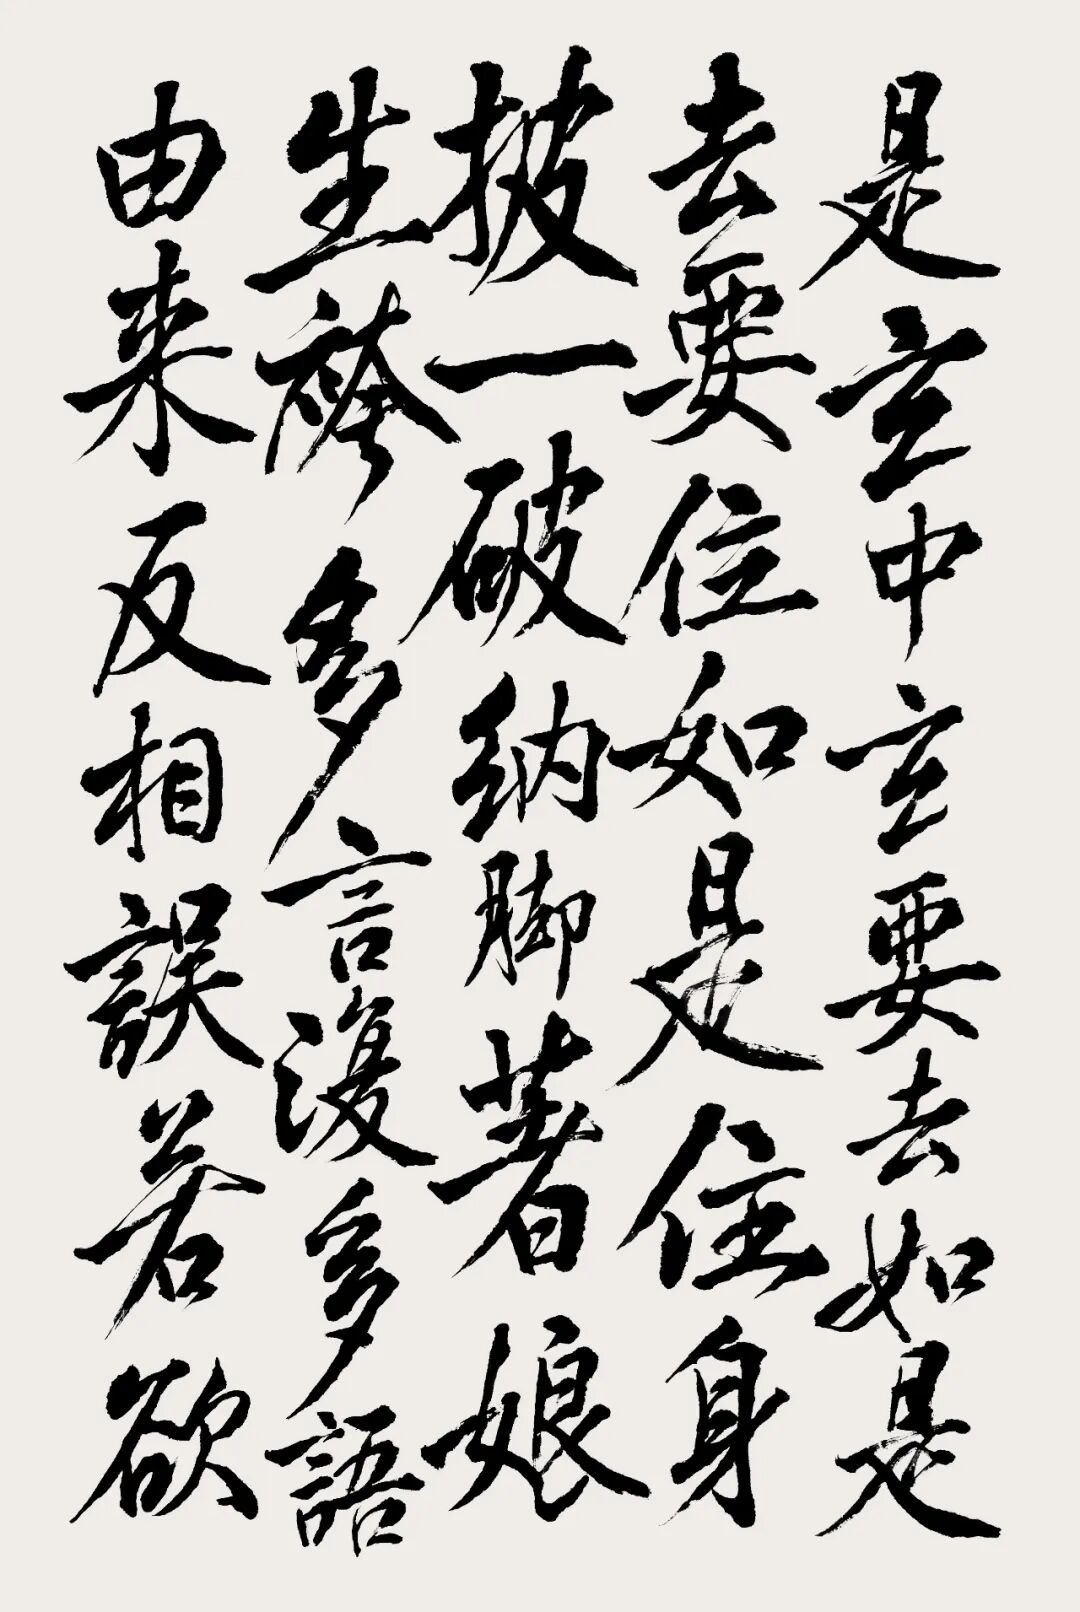 是玄中玄要去如是
去要位如是住身
披一破纳脚著娘
生袴多言復多語
由来反相誤若欲